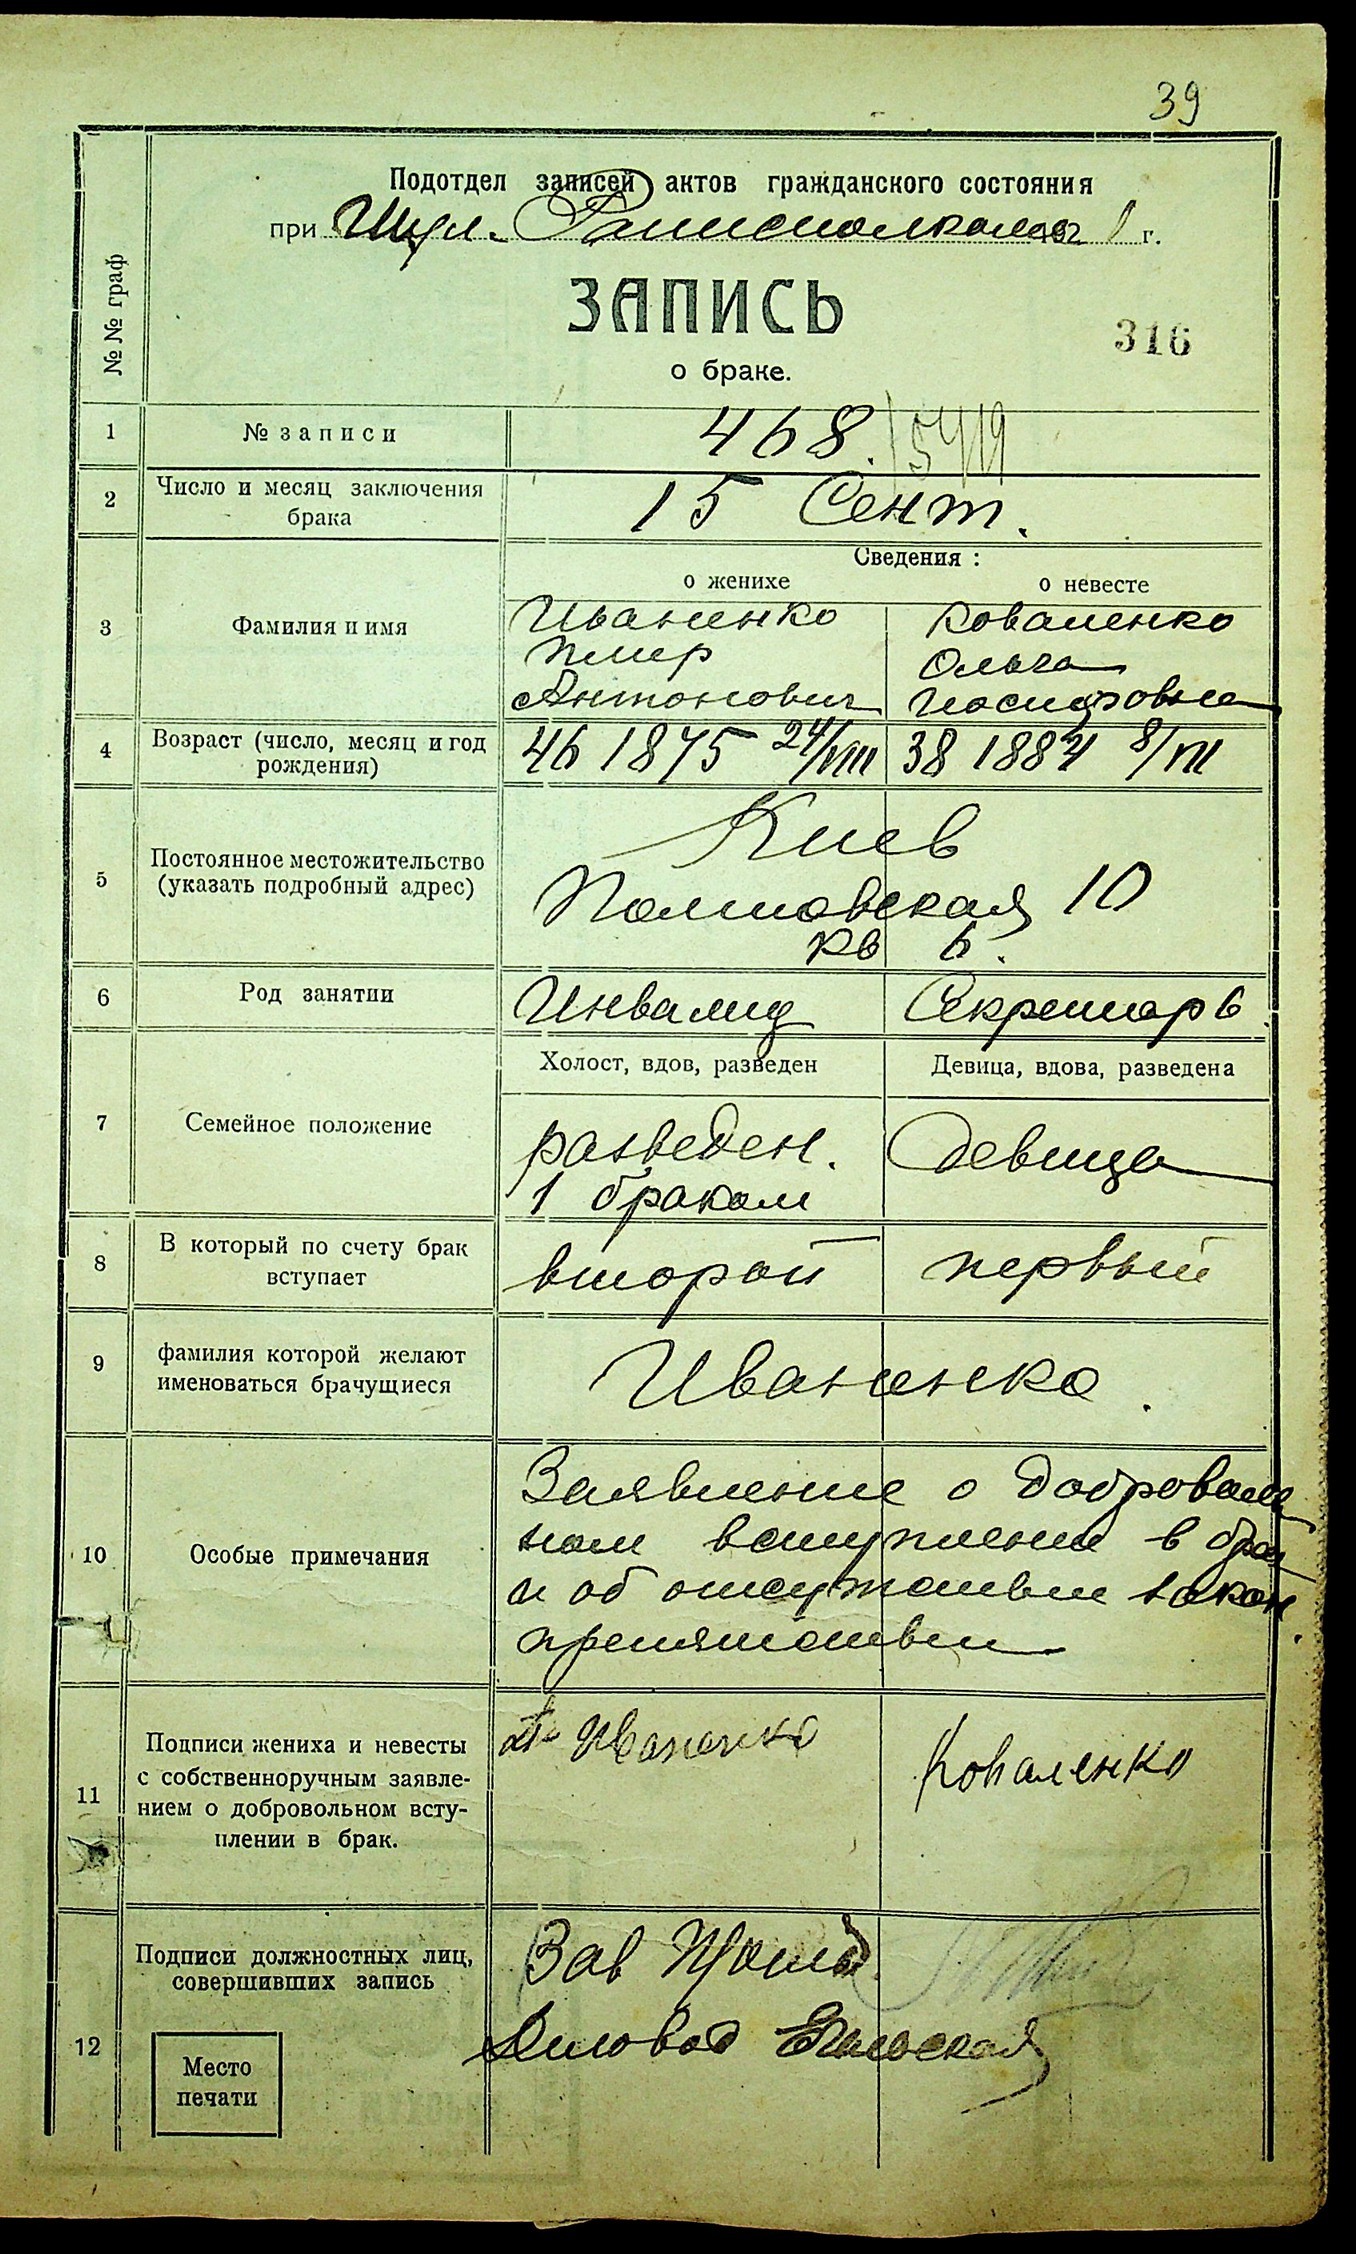 39
Подотдел записей актов гражданского состояния
при Шул. Раписполкоме 1921 г.
ЗАПИСЬ
316
о браке.
№ № граф
1 № записи 468.
2 Число и месяц заключения
брака
15 Сент.
Сведения :
о женихе о невесте
3 Фамилия и имя
Иваненко
Антонович
Коваленко
Ольга
Иосифовна
4 Возраст (число, месяц и год
рождения)
46 1875 24/VIII 38 1884 8/VII
5 Постоянное местожительство
(указать подробный адрес)
Киев
Полтовская 10
кв 6.
6 Род занятии Инвалид Секретарь
Холост, вдов, разведен Девица, вдова, разведена
7 Семейное положение
разведен.
1 браком
Девица
8 В который по счету брак
вступает
второй первый
9 фамилия которой желают
именоваться брачущиеся
Иваненко.
10 Особые примечания
Заявление о доброволь
ном вступлении в брак
и об отсутствии закон.
препятствии
11 Подписи жениха и невесты
с собственноручным заявле-
нием о добровольном всту-
плении в брак.
Иваненко Коваленко
12 Подписи должностных лиц,
совершивших запись
Зав
Деловод
Место
печати